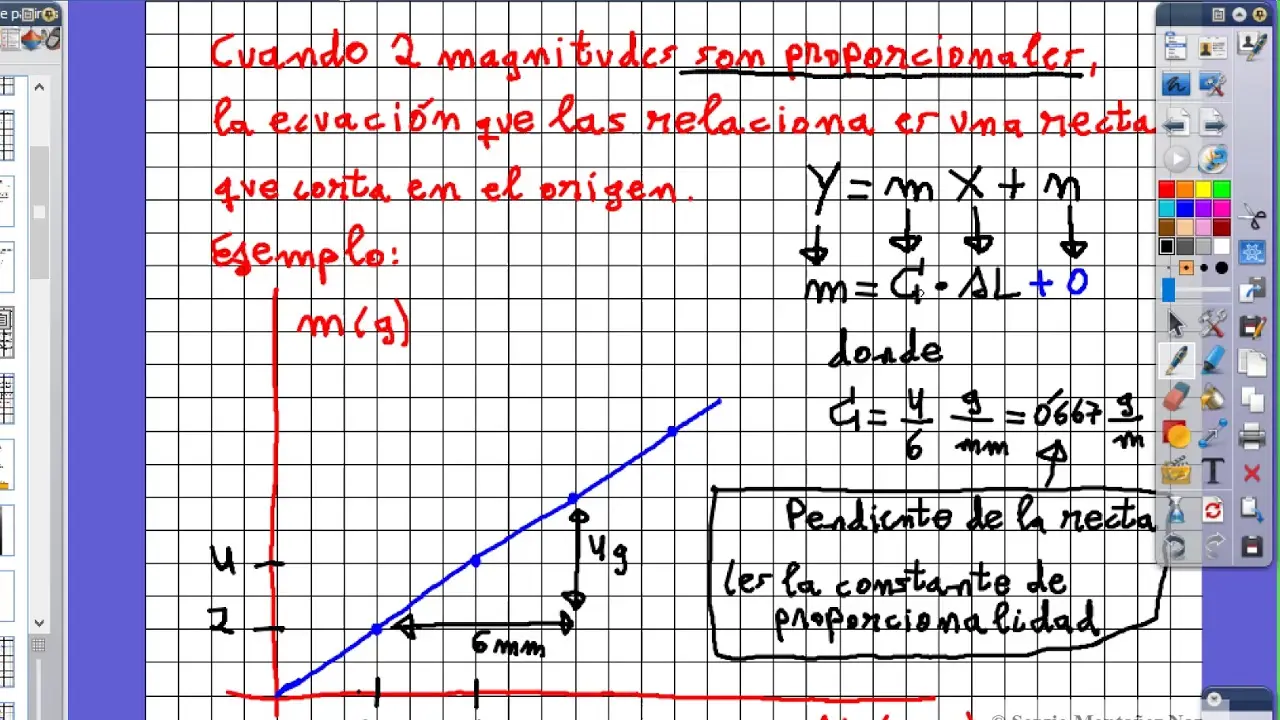 Cuando 2 magnitudes son proporcionales,
la ecuación que las relaciona es una recta
que corta en el origen.
Ejemplo:
m(g)
Y = m X + n
m = G · ΔL + 0
donde
G = 4/6 g/mm = 0'667 g/m
Pendiente de la recta
(es la constante de
proporcionalidad
4
2
4g
6mm